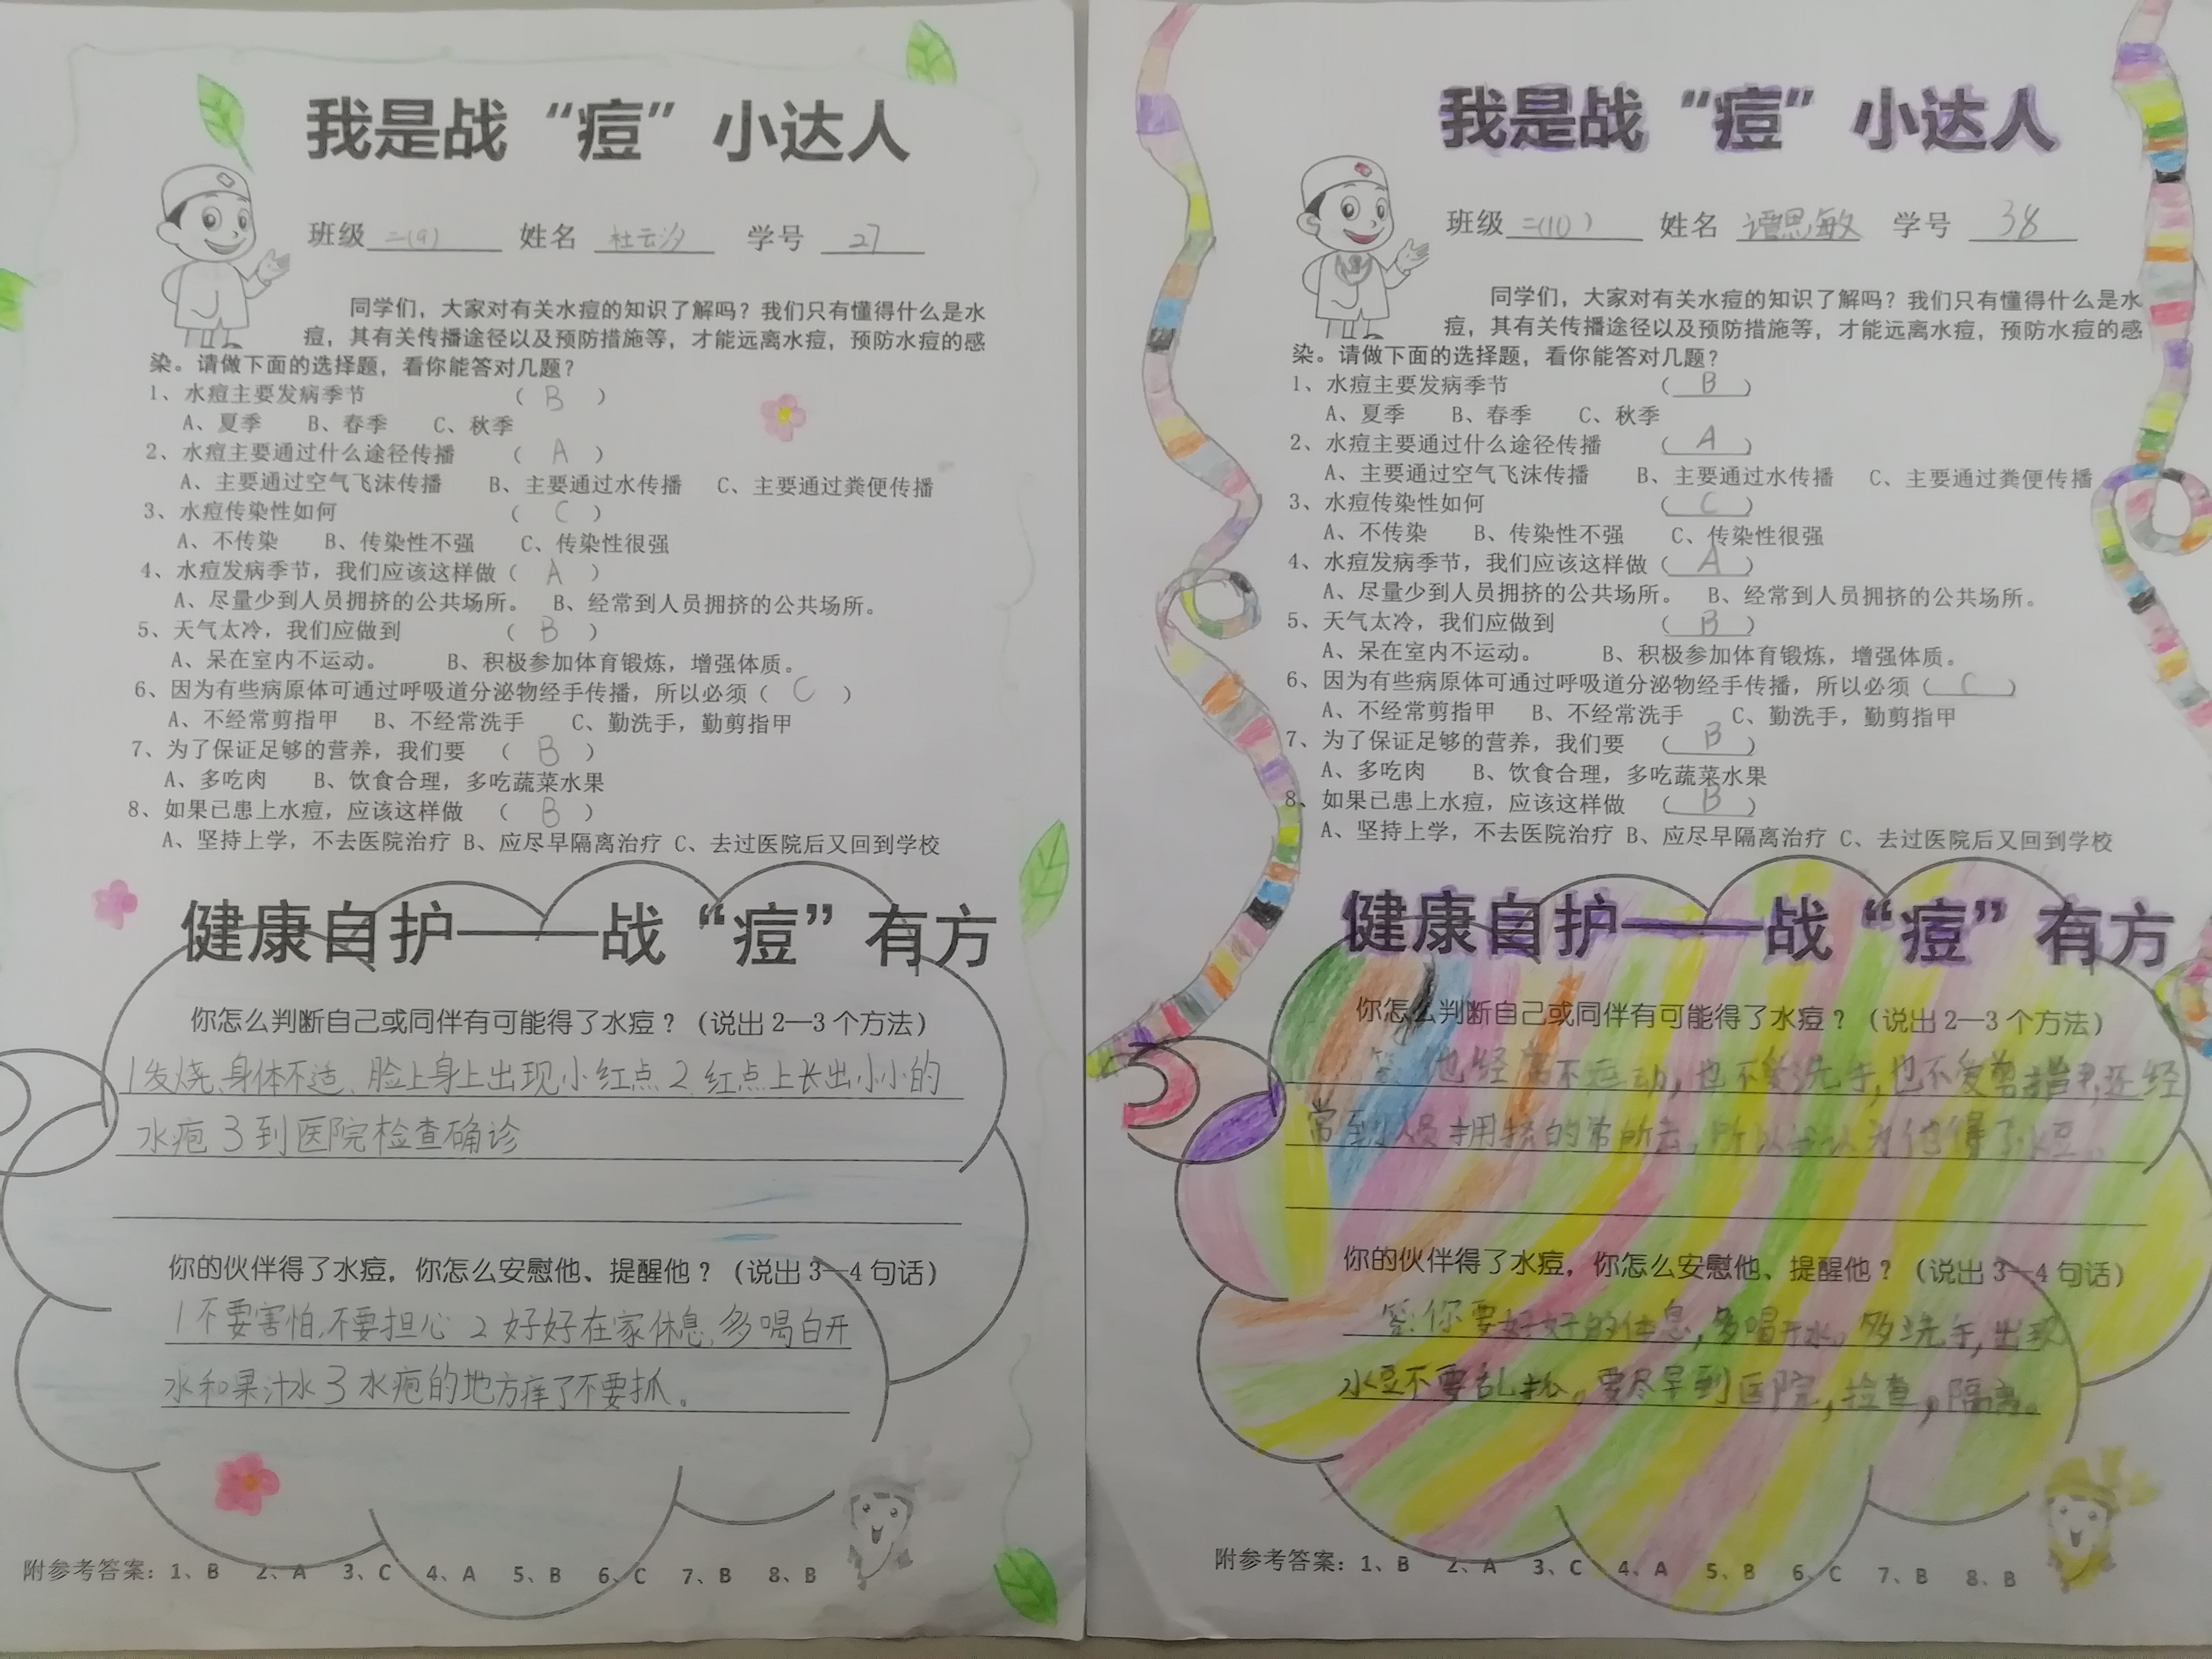 我是战“痘”小达人
班级 二(9) 姓名 杜云汐 学号 27
同学们，大家对有关水痘的知识了解吗？我们只有懂得什么是水
痘，其有关传播途径以及预防措施等，才能远离水痘，预防水痘的感
染。请做下面的选择题，看你能答对几题？
1、水痘主要发病季节 （ B ）
A、夏季 B、春季 C、秋季
2、水痘主要通过什么途径传播 （ A ）
A、主要通过空气飞沫传播 B、主要通过水传播 C、主要通过粪便传播
3、水痘传染性如何 （ C ）
A、不传染 B、传染性不强 C、传染性很强
4、水痘发病季节，我们应该这样做（ A ）
A、尽量少到人员拥挤的公共场所。 B、经常到人员拥挤的公共场所。
5、天气太冷，我们应做到 （ B ）
A、呆在室内不运动。 B、积极参加体育锻炼，增强体质。
6、因为有些病原体可通过呼吸道分泌物经手传播，所以必须（ C ）
A、不经常剪指甲 B、不经常洗手 C、勤洗手，勤剪指甲
7、为了保证足够的营养，我们要 （ B ）
A、多吃肉 B、饮食合理，多吃蔬菜水果
8、如果已患上水痘，应该这样做 （ B ）
A、坚持上学，不去医院治疗 B、应尽早隔离治疗 C、去过医院后又回到学校
健康自护——战“痘”有方
你怎么判断自己或同伴有可能得了水痘？（说出2—3个方法）
1发烧、身体不适、脸上身上出现小红点 2.红点上长出小小的
水疱 3到医院检查确诊
你的伙伴得了水痘，你怎么安慰他、提醒他？（说出3—4句话）
1不要害怕,不要担心 2好好在家休息,多喝白开
水和果汁水 3水疱的地方痒了不要抓。
附参考答案：1、B 2、A 3、C 4、A 5、B 6、C 7、B 8、B
我是战“痘”小达人
班级 二(10) 姓名 谭思敏 学号 38
同学们，大家对有关水痘的知识了解吗？我们只有懂得什么是水
痘，其有关传播途径以及预防措施等，才能远离水痘，预防水痘的感
染。请做下面的选择题，看你能答对几题？
1、水痘主要发病季节 （ B ）
A、夏季 B、春季 C、秋季
2、水痘主要通过什么途径传播 （ A ）
A、主要通过空气飞沫传播 B、主要通过水传播 C、主要通过粪便传播
3、水痘传染性如何 （ C ）
A、不传染 B、传染性不强 C、传染性很强
4、水痘发病季节，我们应该这样做（ A ）
A、尽量少到人员拥挤的公共场所。 B、经常到人员拥挤的公共场所。
5、天气太冷，我们应做到 （ B ）
A、呆在室内不运动。 B、积极参加体育锻炼，增强体质。
6、因为有些病原体可通过呼吸道分泌物经手传播，所以必须（ C ）
A、不经常剪指甲 B、不经常洗手 C、勤洗手，勤剪指甲
7、为了保证足够的营养，我们要 （ B ）
A、多吃肉 B、饮食合理，多吃蔬菜水果
8、如果已患上水痘，应该这样做 （ B ）
A、坚持上学，不去医院治疗 B、应尽早隔离治疗 C、去过医院后又回到学校
健康自护——战“痘”有方
你怎么判断自己或同伴有可能得了水痘？（说出2—3个方法）
答:他经常不运动,也不爱洗手,也不爱剪指甲,还经
常到人员拥挤的常所去,所以我认为他得了水豆。
你的伙伴得了水痘，你怎么安慰他、提醒他？（说出3—4句话）
答:你要好好的休息,多喝开水。多洗手,出现
水豆不要乱抓。要尽早到医院,检查,隔离。
附参考答案：1、B 2、A 3、C 4、A 5、B 6、C 7、B 8、B